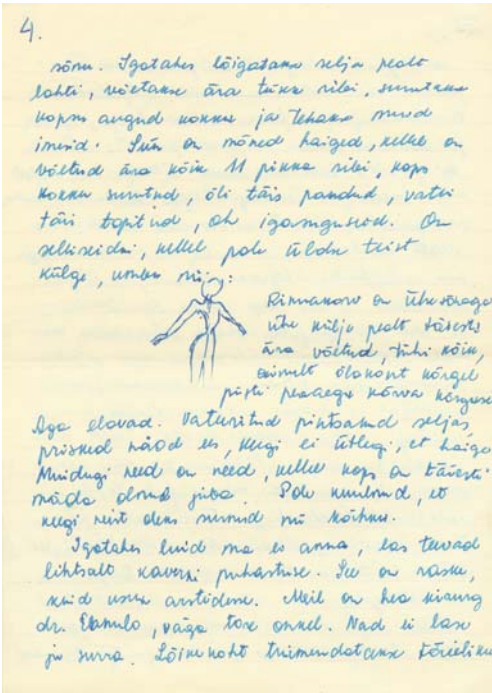 4.
sõnu. Igatahes lõigatakse selja pealt
lahti, võetakse ära tükk ribi, surutakse
kopsu augud kokku ja tehakse muud
imesid. Siin on mõned haiged, kellel on
võetud ära kõik 11 pikka ribi, kops
kokku surutud, õli täis pandud, vatti
täis topitud, oh igasuguseid. On
selliseidki, kellel pole üldse teist
külge, umbes nii:
Rinnakorv on ühesõnaga
ühe külje pealt täiesti
ära võetud, tühi kõik,
ainult õlakont kõrgel
püsti peaaegu kõrva kõrgusel
Aga elavad. Vateeritud pintsakud seljas,
prisked näod ees, keegi ei ütlegi, et haige
Muidugi need on need, kellel kops on täiesti
mäda olnud juba. Pole kuulnud, et
keegi neist oleks surnud nii kõhna.
Igatahes luid ma ei anna, las teevad
lihtsalt kaverni puhastuse. See on raske,
kuid usun arstidesse. Meil on hea kirurg
dr. , väga tore onkel. Nad ei lase
ju surra. Lõikekoht tuimendatakse